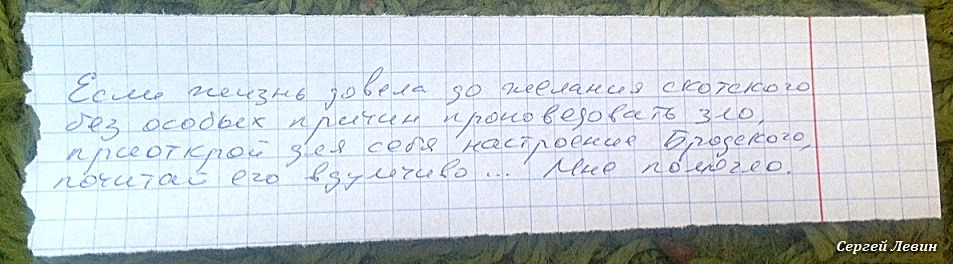 Если жизнь довела до желания скотского
без особых причин проповедовать зло,
приоткрой для себя настроение Бродского,
почитай его вдумчиво... Мне помогло.
Сергей Левин